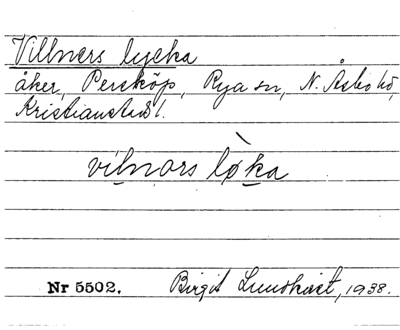 Villners lycka
åker, Persköp, Rya sn, N. Åsbo hd,
Kristianstads l.
vilnars lø̀ka
Nr 5502. Birgit Lundkvist, 1938.